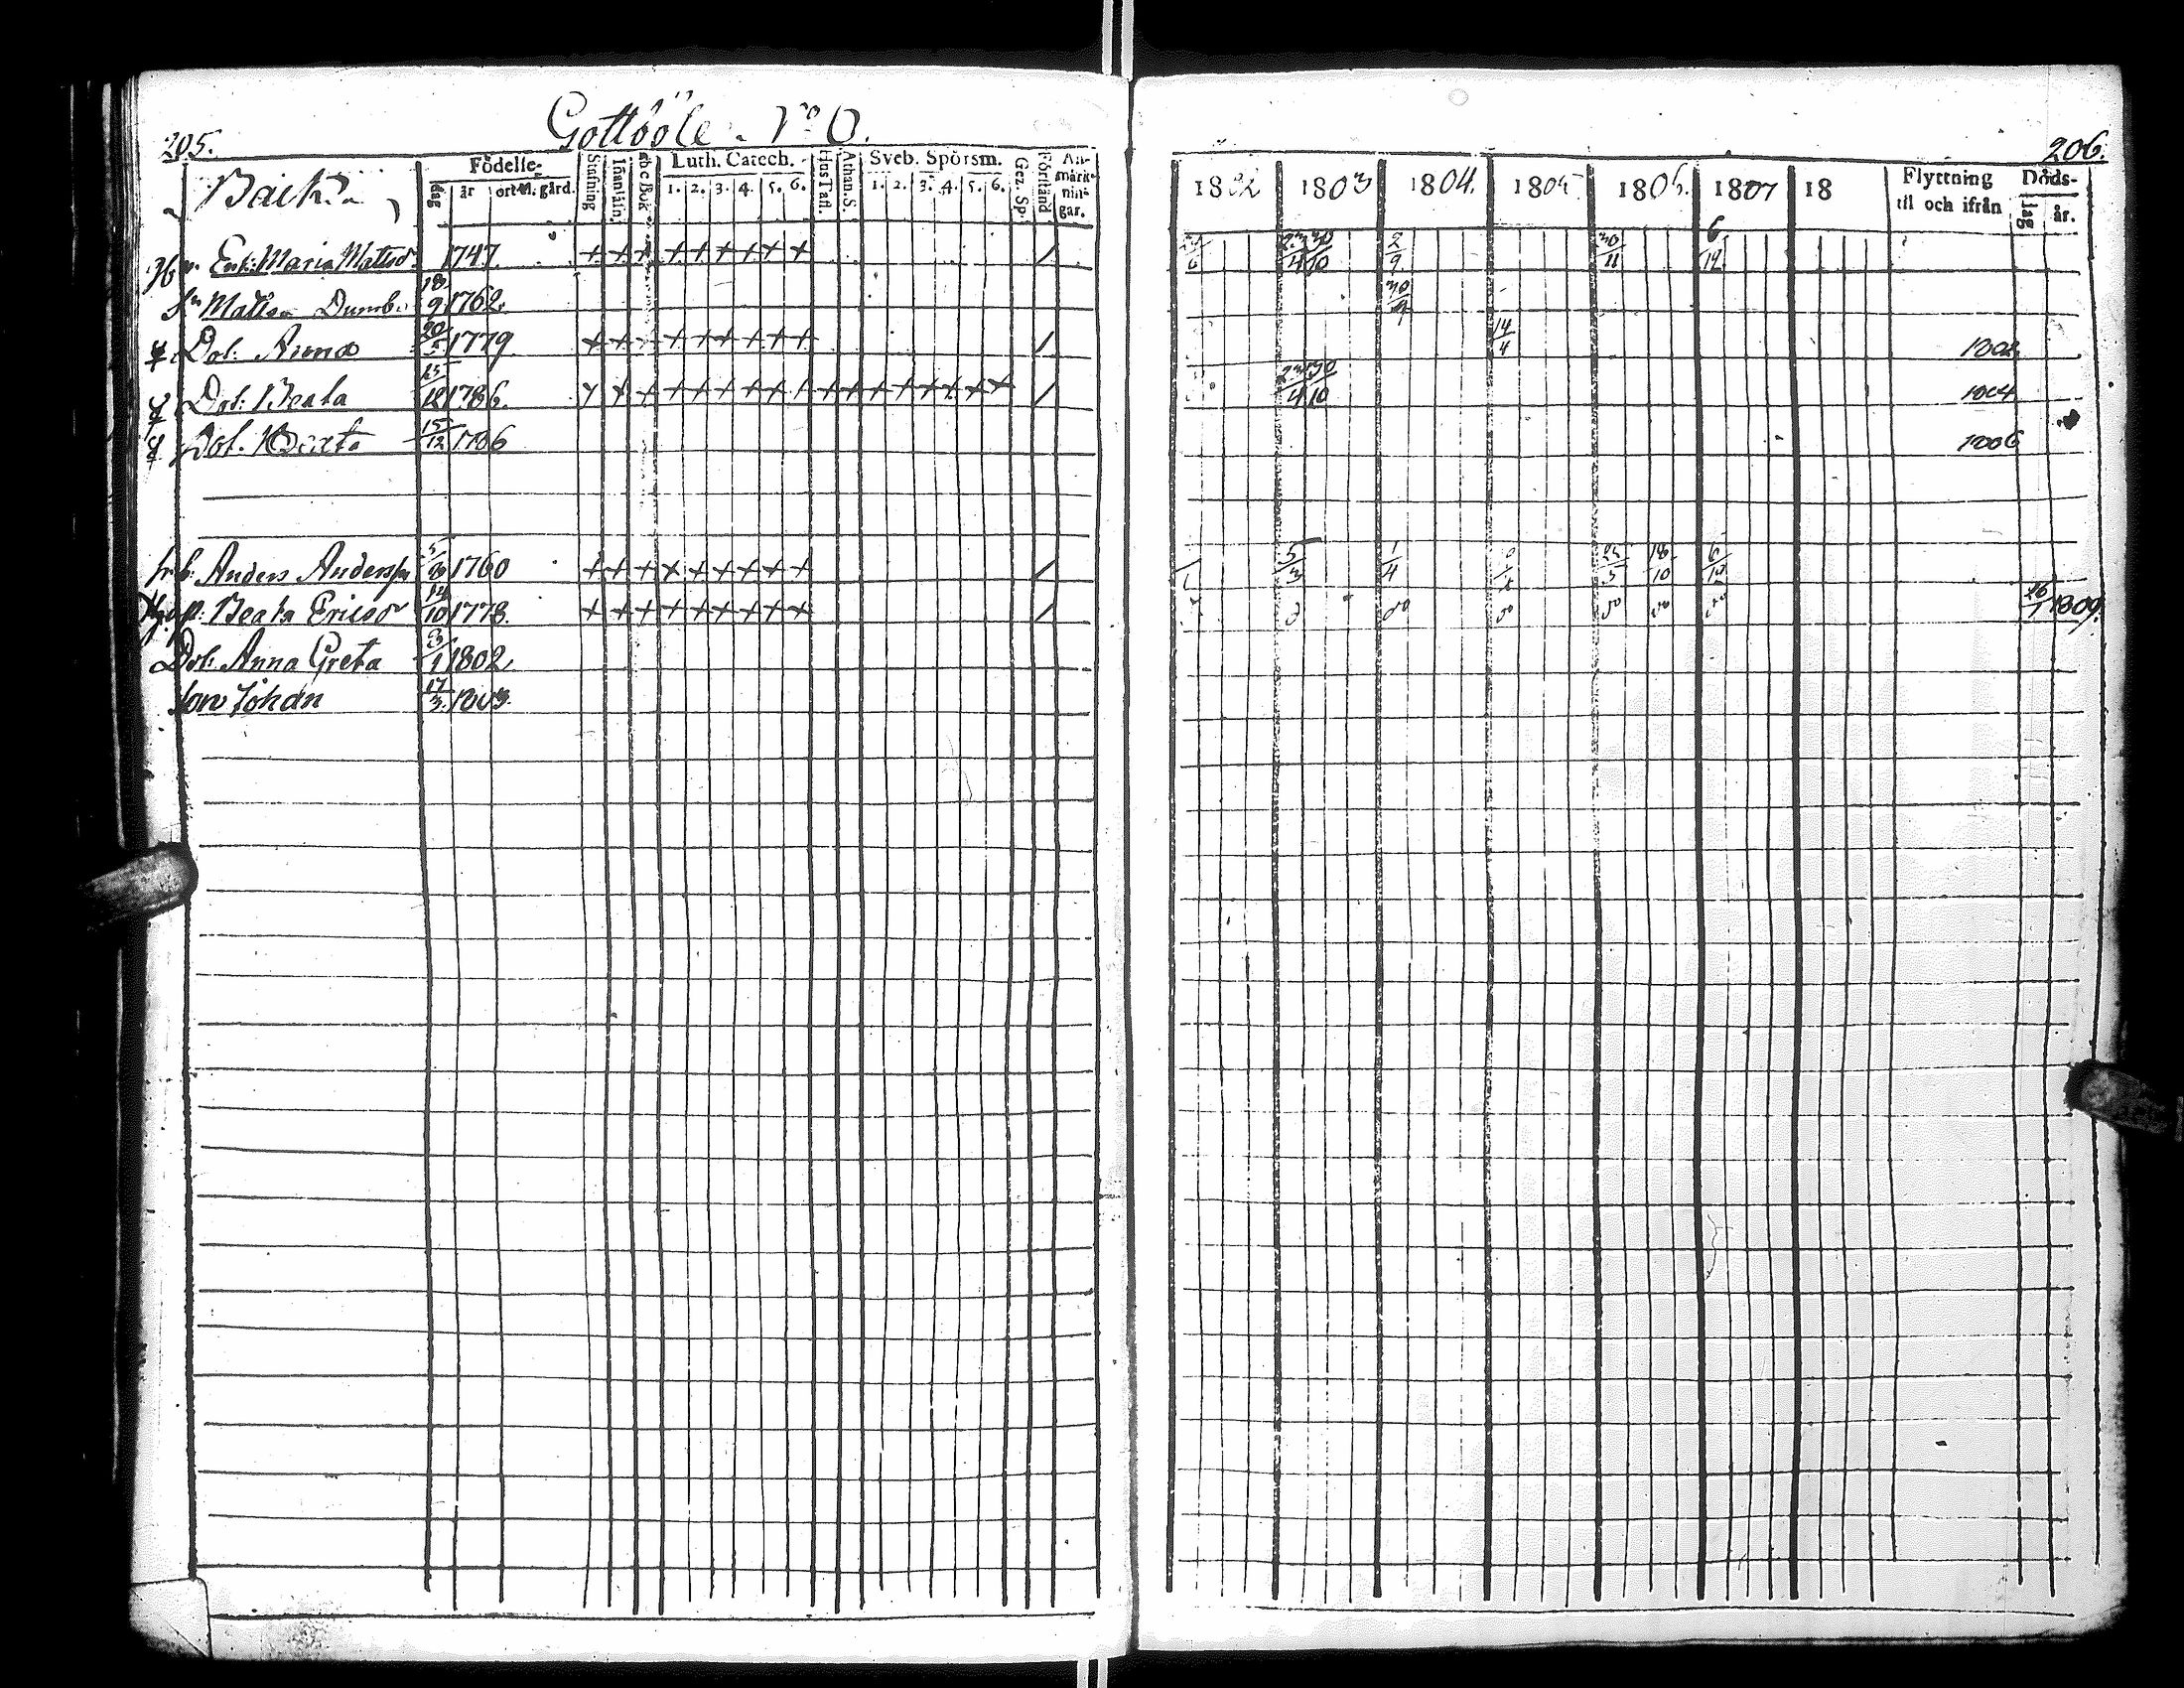 205.
Gottböle N:o
Födelse-
Stafning
Luth. Catech.
Hus Tafl.
Athan. S.
Sveb. Spörsm.
Gez. Sp.
Förstånd
An-
märk-
nin-
gar.
dag
år
ort M. gård.
abc Bok
1. 2. 3. 4. 5. 6.
1. 2. 3. 4. 5. 6.
Enk: Maria Mattsd 1747 + + + + + + + + +
Matts Dumb 18/9 1762.
Dot: Anna 20/5 1779 + + + + + + + +
Dot: Beata 15/12 1786. + + + + + + + + + + + + + + + +
Dot. 15/12 1786
Anders Andersson 1760 + + + + + + + + +
Beata Ericsd 14/10 1778. + + + + + + + + +
Dot: Anna Greta 3/1 1802
Son Johan 17/3 1803.
206.
1802 1803 1804. 1805 1806. 1807 18
Flyttning
til och ifrån
Döds-
dag
år.
23/4 30/10 2/9 30/11 6/12
30/9
14/4 1802
23/4 30/10 1804
1806
5/3 1/4 18/10 6/12
1809.